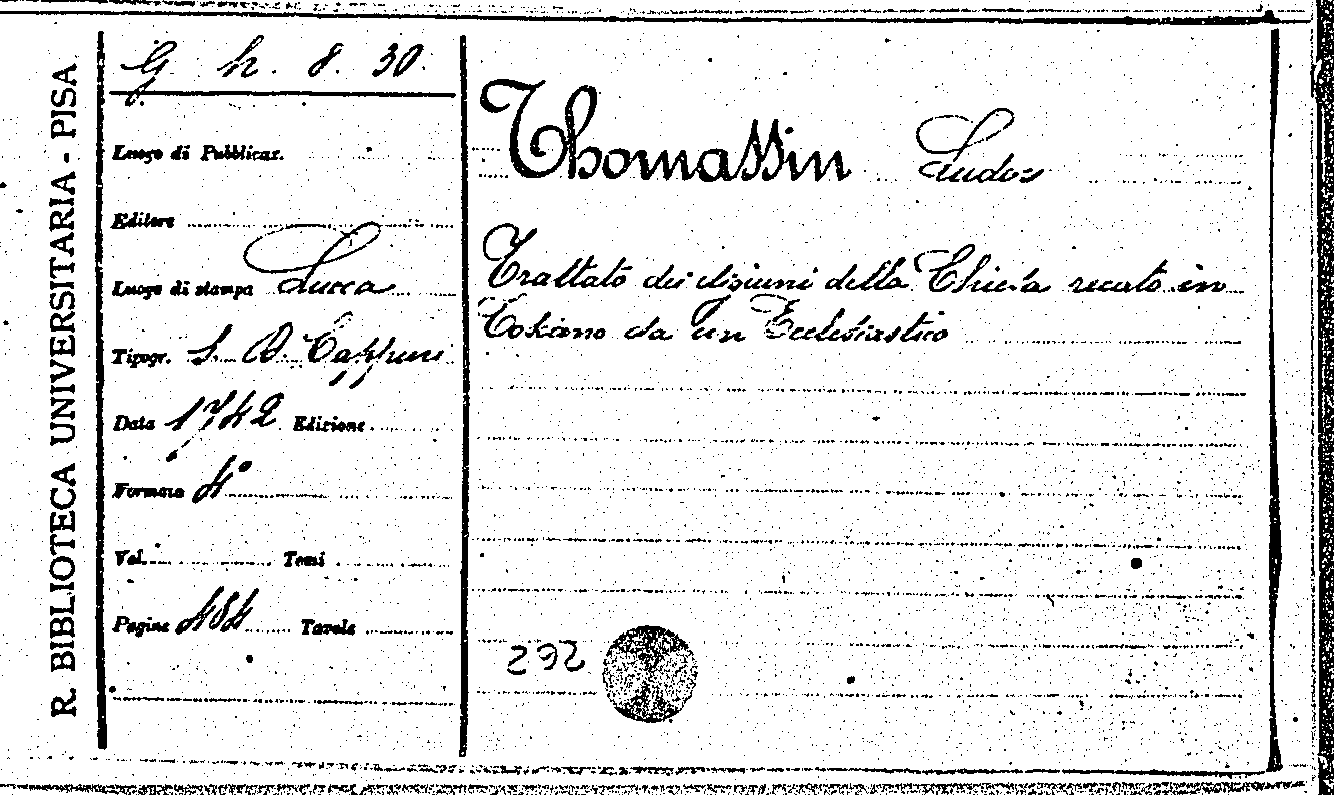 R. BIBLIOTECA UNIVERSITARIA - PISA
G. h. 8. 30.
Luogo di Pubblicaz.
Editore
Luogo di stampa Lucca
Tipogr. S. D. Cappuri
Data 1742 Edizione
Formato 4°
Vol. Tomi
Pagine 484 Tavole
Thomassin Ludov
Trattato dei digiuni della Chiesa recato in
Toscano da un Ecclesiastico
292